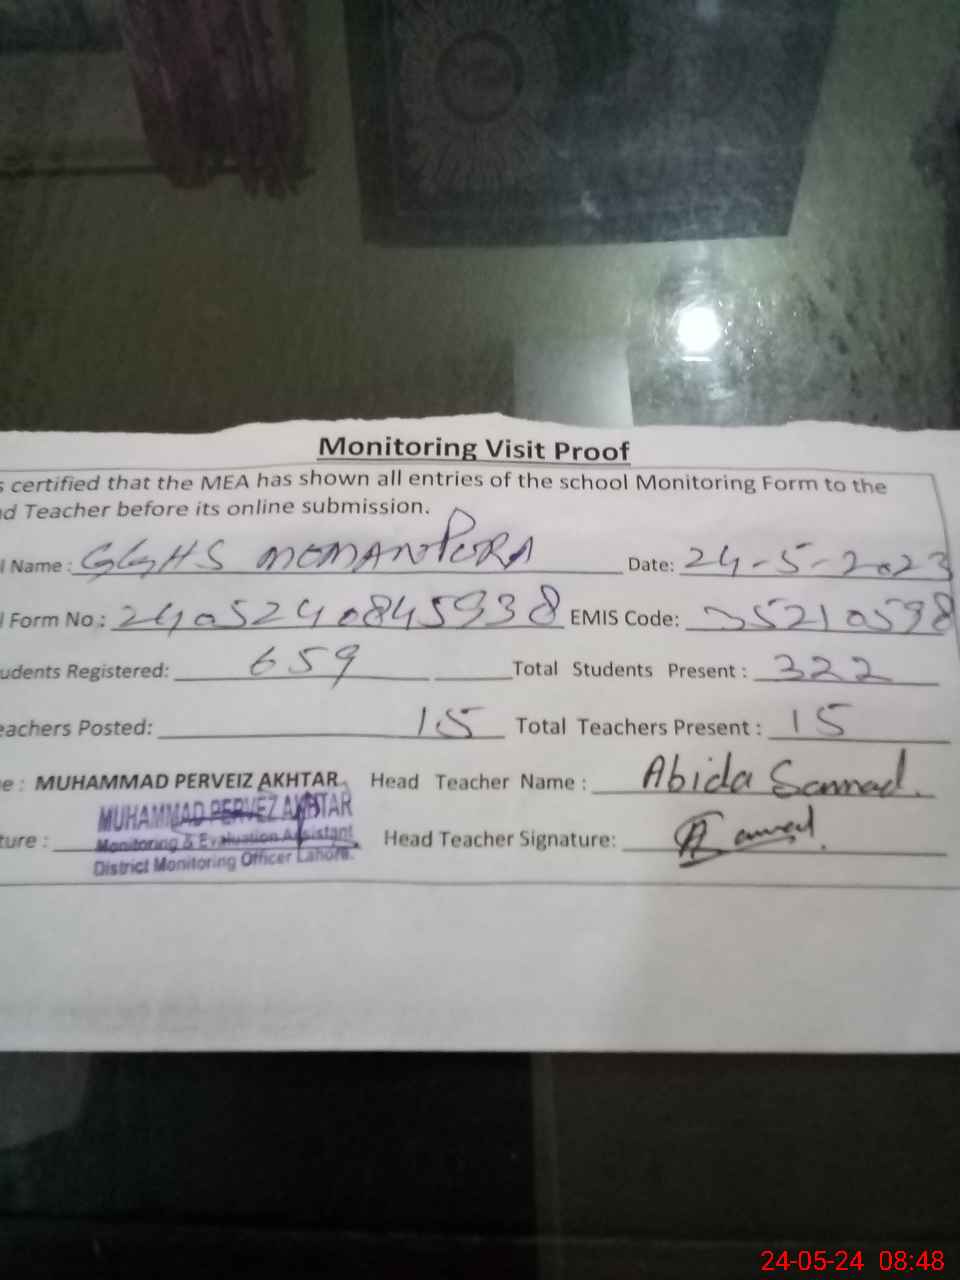 Monitoring Visit Proof
s certified that the MEA has shown all entries of the school Monitoring Form to the
d Teacher before its online submission.
l Name : GGHS MOMANPURA Date: 24-5-2023
l Form No.: 2405240845938 EMIS Code: 35210598
udents Registered: 659 Total Students Present : 322
eachers Posted: 15 Total Teachers Present : 15
e : MUHAMMAD PERVEIZ AKHTAR Head Teacher Name : Abida Sammad.
MUHAMMAD PERVEZ AKHTAR
ture : Monitoring & Evaluation Assistant Head Teacher Signature:
District Monitoring Officer Lahore.
24-05-24 08:48